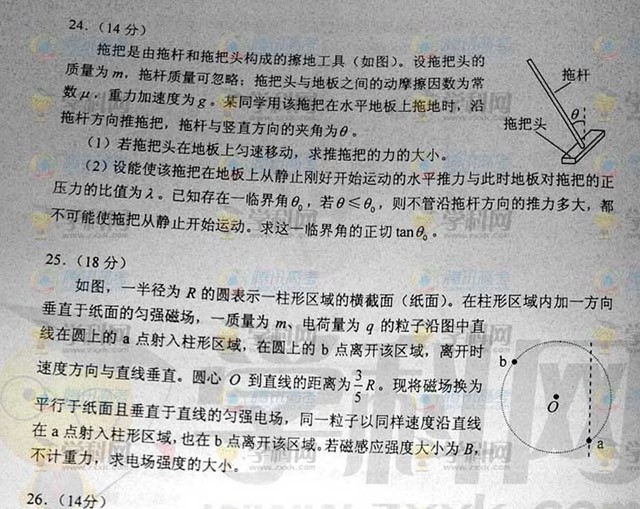 24.（14 分）
拖把是由拖杆和拖把头构成的擦地工具（如图）。设拖把头的
质量为 m，拖杆质量可忽略；拖把头与地板之间的动摩擦因数为常
数 μ，重力加速度为 g。某同学用该拖把在水平地板上拖地时，沿
拖杆方向推拖把，拖杆与竖直方向的夹角为 θ。
（1）若拖把头在地板上匀速移动，求推拖把的力的大小。
（2）设能使该拖把在地板上从静止刚好开始运动的水平推力与此时地板对拖把的正
压力的比值为 λ。已知存在一临界角 θ₀，若 θ≤θ₀，则不管沿拖杆方向的推力多大，都
不可能使拖把从静止开始运动。求这一临界角的正切 tanθ₀。
拖杆
θ
拖把头
25.（18 分）
如图，一半径为 R 的圆表示一柱形区域的横截面（纸面）。在柱形区域内加一方向
垂直于纸面的匀强磁场，一质量为 m、电荷量为 q 的粒子沿图中直
线在圆上的 a 点射入柱形区域，在圆上的 b 点离开该区域，离开时
速度方向与直线垂直。圆心 O 到直线的距离为 3/5 R。现将磁场换为
平行于纸面且垂直于直线的匀强电场，同一粒子以同样速度沿直线
在 a 点射入柱形区域，也在 b 点离开该区域。若磁感应强度大小为 B，
不计重力，求电场强度的大小。
b
O
a
26.（14分）